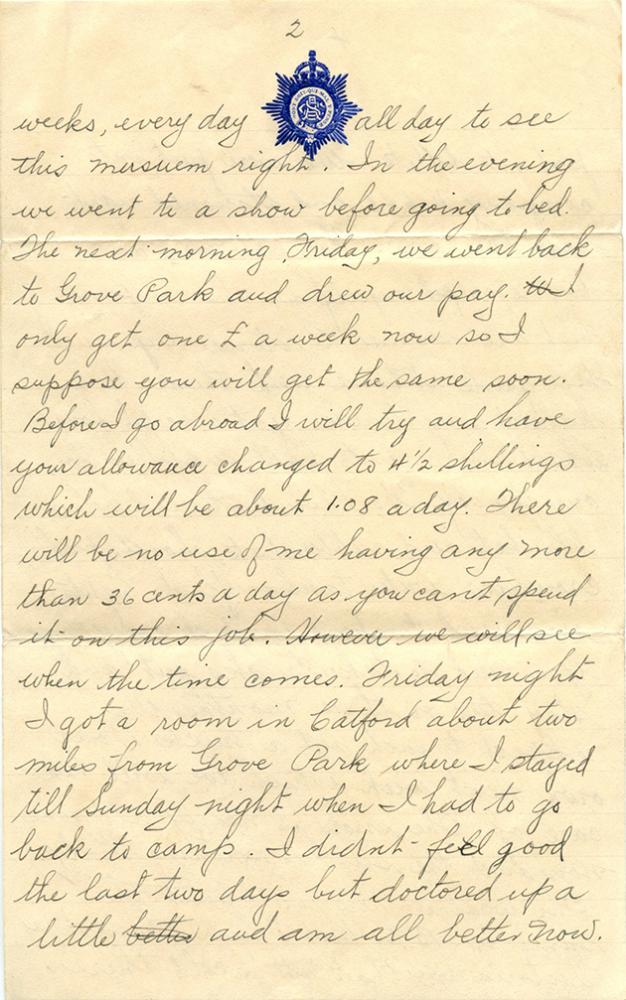 2
weeks, every day all day to see
this musuem right. In the evening
we went to a show before going to bed.
The next morning, Friday, we went back
to Grove Park and drew our pay. I
only get one £ a week now so I
suppose you will get the same soon.
Before I go abroad I will try and have
your allowance changed to 4 1/2 shillings
which will be about 1.08 a day. There
will be no use of me having any more
than 36 cents a day as you cant spend
it on this job. However we will see
when the time comes. Friday night
I got a room in Catford about two
miles from Grove Park where I stayed
till Sunday night when I had to go
back to camp. I didnt feel good
the last two days but doctored up a
little and am all better now.